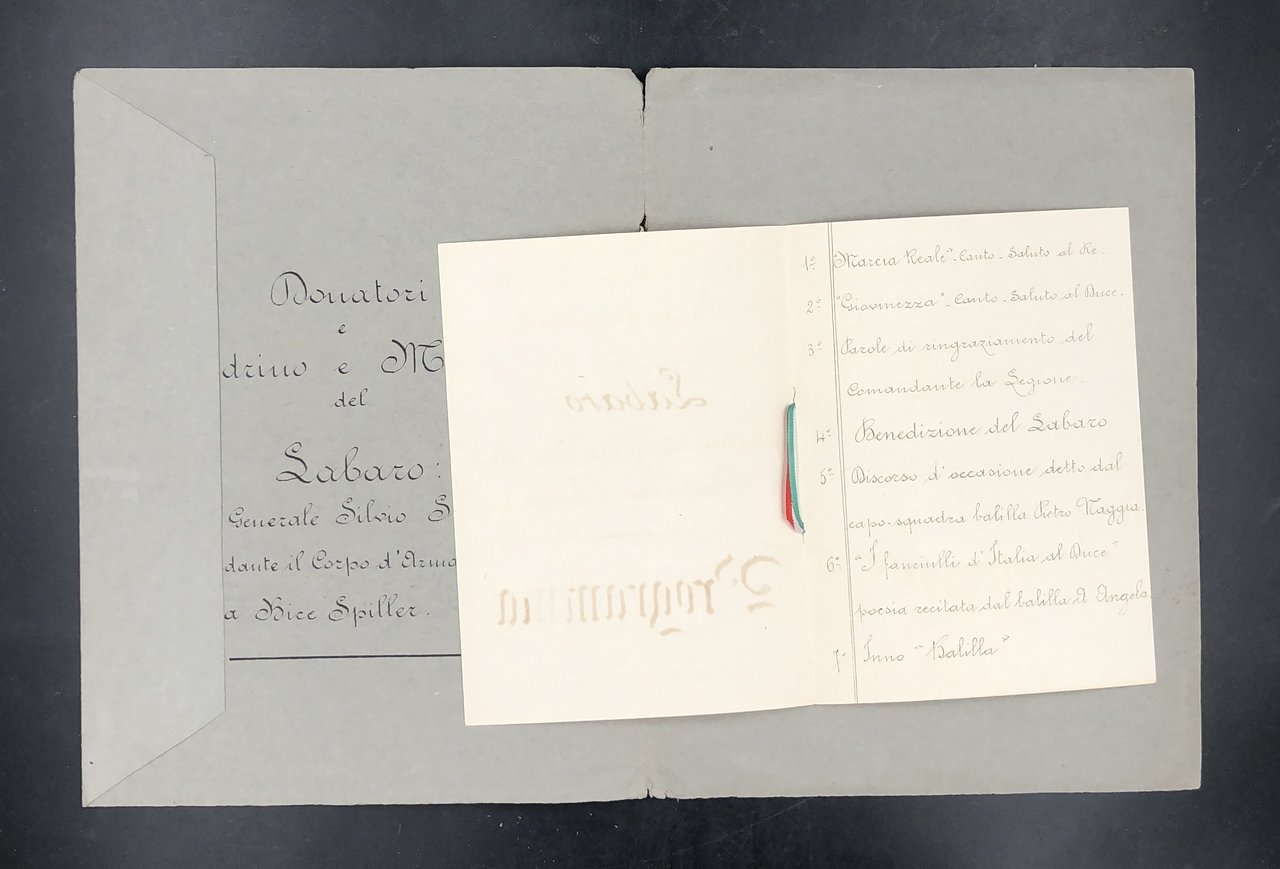 Donatori
e
drino e M
del
Labaro:
Generale Silvio S
dante il Corpo d'Arma
a Bice Spiller.
Labaro
Programma
1º "Marcia Reale" - Canto - Saluto al Re.
2º "Giovinezza" - Canto - Saluto al Duce.
3º Parole di ringraziamento del
Comandante la Legione.
4º Benedizione del Labaro
5º Discorso d'occasione detto dal
capo-squadra balilla Pietro Naggia.
6º "I fanciulli d'Italia al Duce"
poesia recitata dal balilla A. Angela.
7º Inno "Balilla"